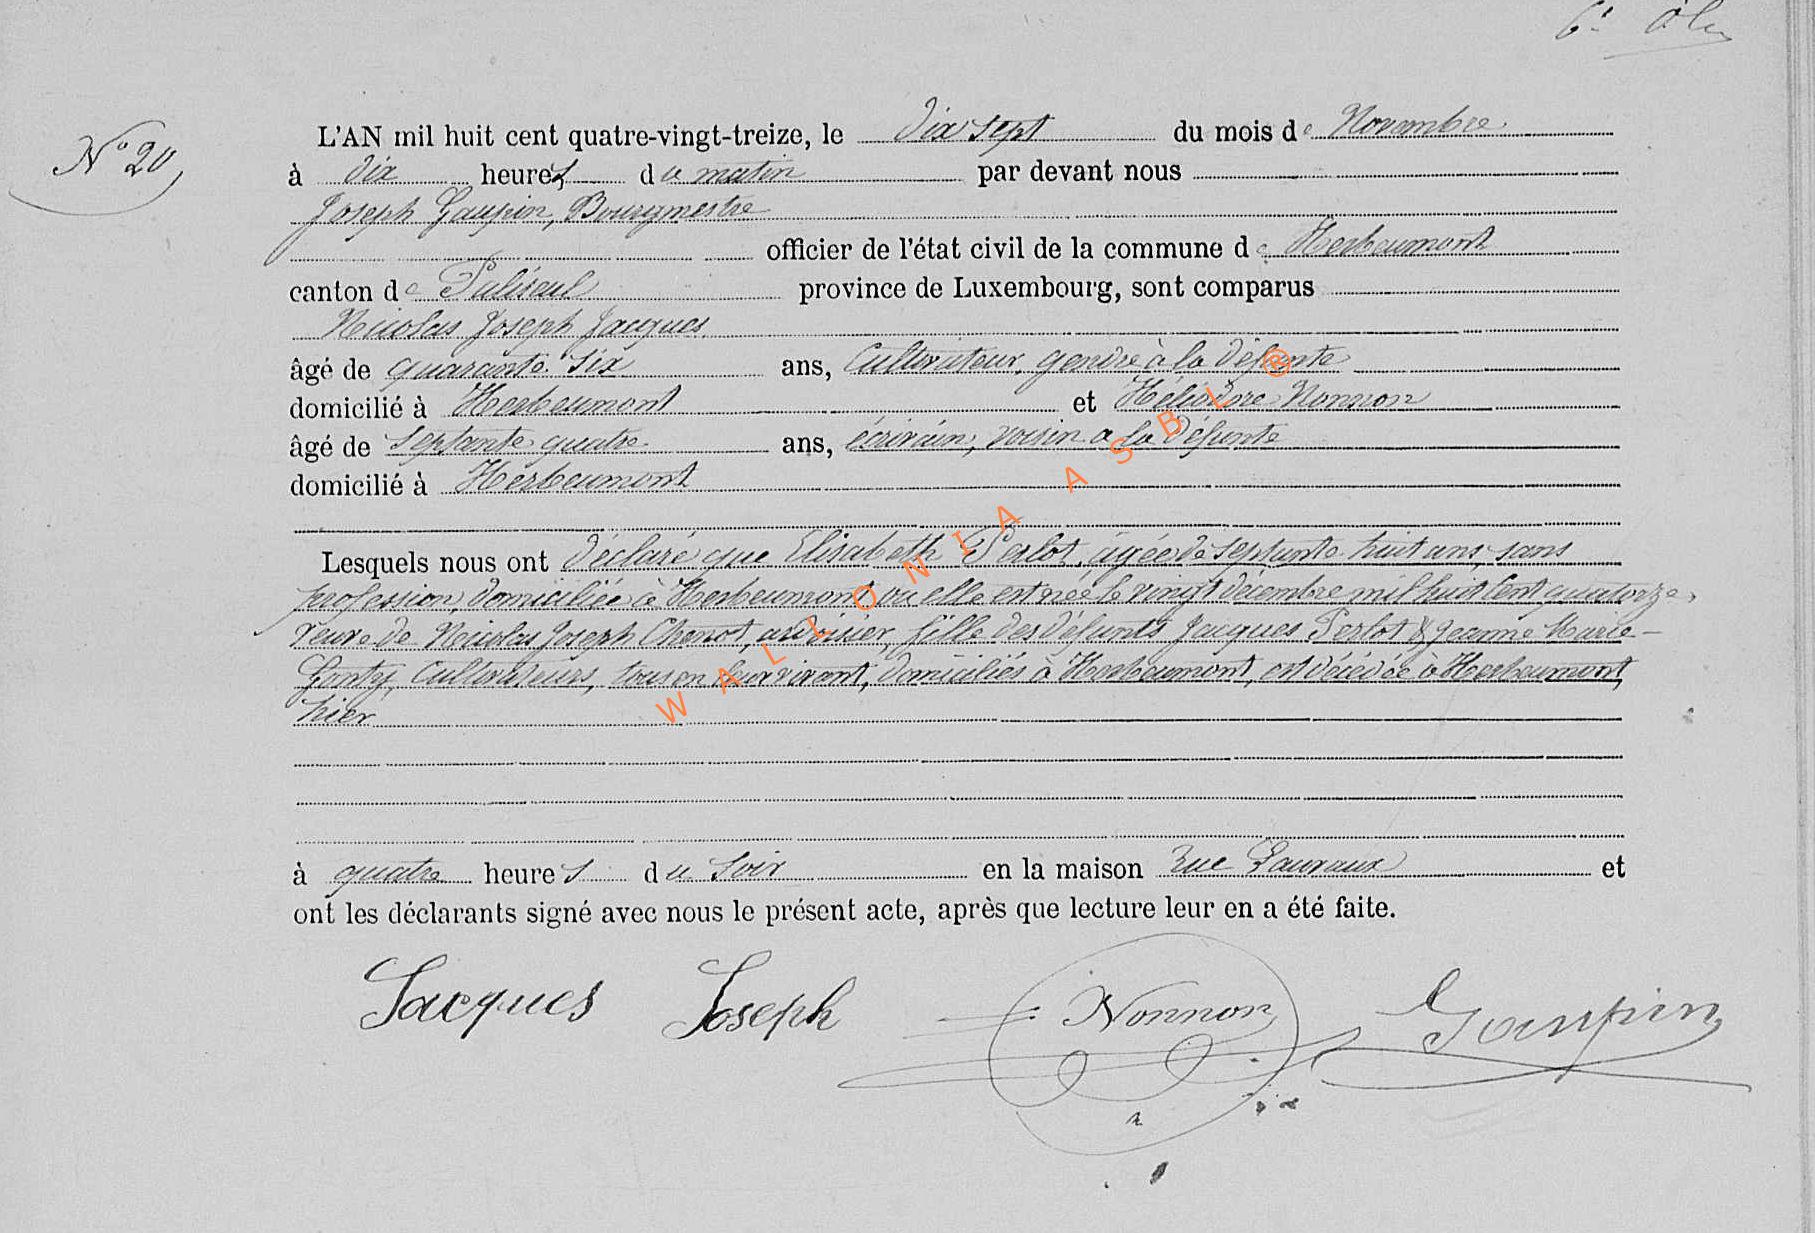 N° 20
L'AN mil huit cent quatre-vingt-treize, le dix sept du mois de Novembre
à dix heures du matin par devant nous
Joseph Gaupin, Bourgmestre
officier de l'état civil de la commune de Herbeumont
canton de Paliseul province de Luxembourg, sont comparus
Nicolas Joseph Jacques
âgé de quarante six ans, Cultivateur, gendre à la défunte
domicilié à Herbeumont et Héliodore Nonnon
âgé de septante quatre ans, écrivain, voisin à la défunte
domicilié à Herbeumont
Lesquels nous ont déclaré que Elisabeth Perlot, âgée de septante huit ans, sans
profession, domiciliée à Herbeumont, où elle est née le vingt décembre mil huit cent quatorze,
veuve de Nicolas Joseph Chenot, ardoisier, fille des défunts Jacques Perlot & Jeanne Marie
Gonty, Cultivateurs, tous en leur vivant, domiciliés à Herbeumont, est décédée à Herbeumont,
hier
à quatre heures du soir en la maison rue Lauvaux et
ont les déclarants signé avec nous le présent acte, après que lecture leur en a été faite.
Jacques Joseph Nonnon Gaupin
WALLONIA ASBL ®